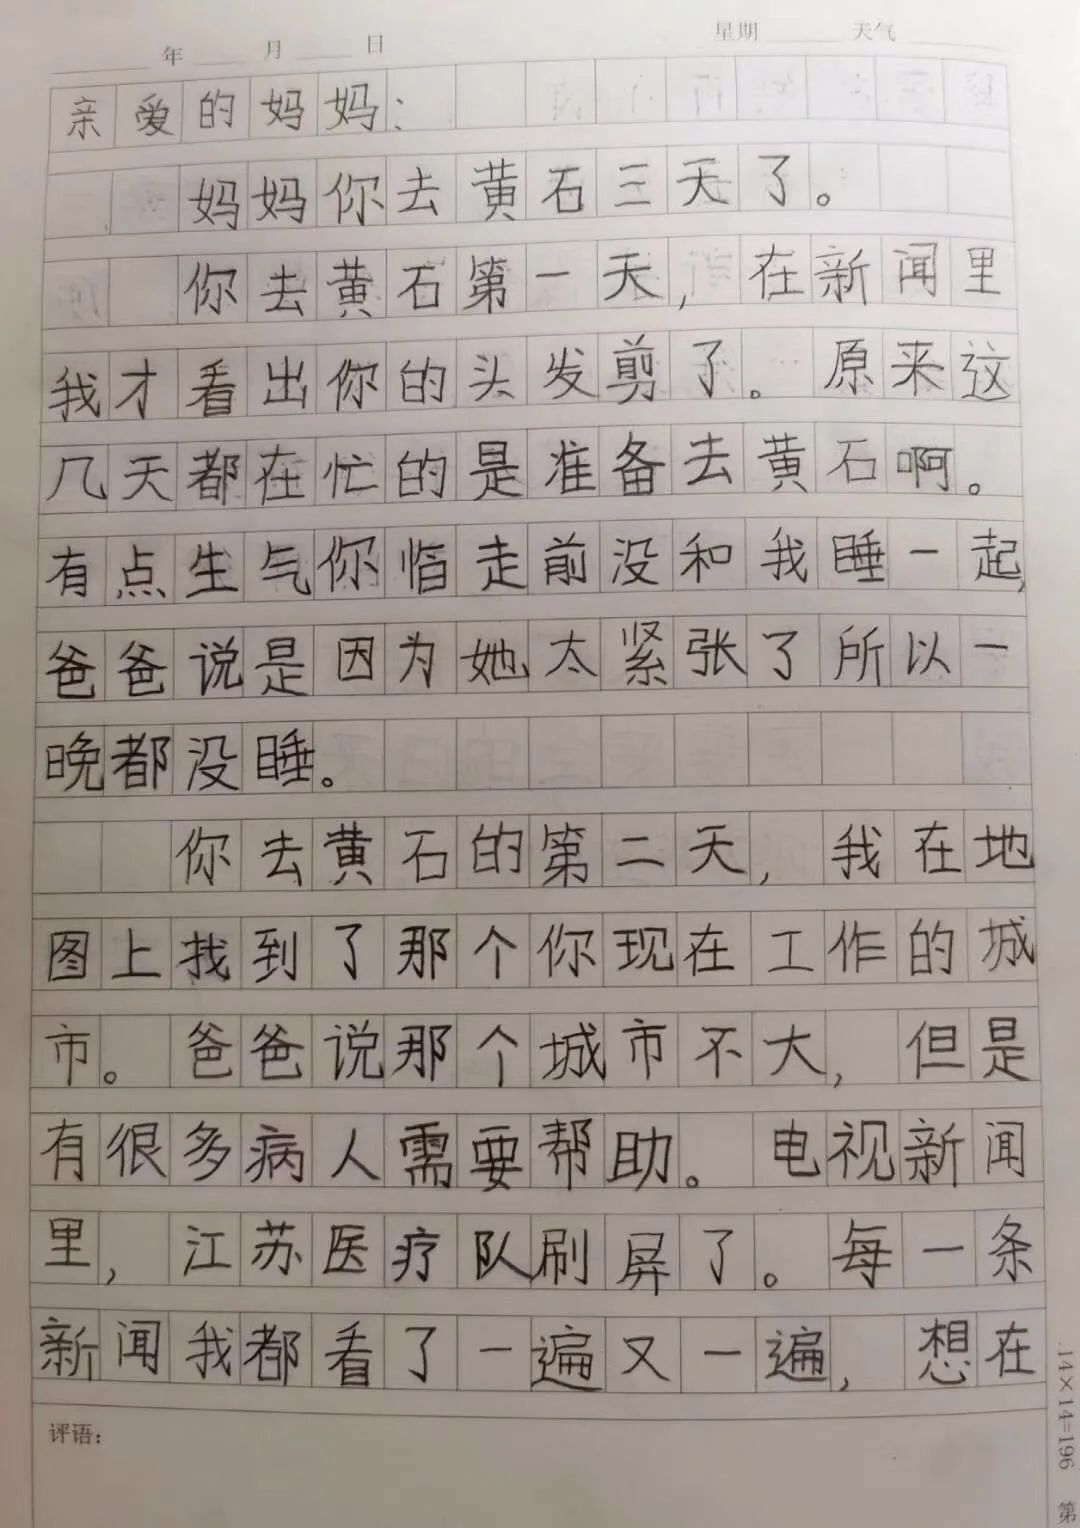 年 月 日 星期 天气
亲爱的妈妈:
妈妈你去黄石三天了。
你去黄石第一天,在新闻里
我才看出你的头发剪了。原来这
几天都在忙的是准备去黄石啊。
有点生气你临走前没和我睡一起,
爸爸说是因为她太紧张了所以一
晚都没睡。
你去黄石的第二天,我在地
图上找到了那个你现在工作的城
市。爸爸说那个城市不大,但是
有很多病人需要帮助。电视新闻
里,江苏医疗队刷屏了。每一条
新闻我都看了一遍又一遍,想在
评语:
14×14=196 第